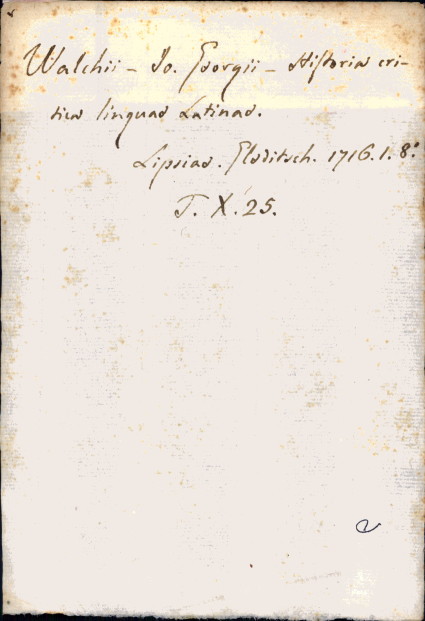 Walchii - Jo. Georgii - Historia cri-
tica linguae Latinae.
Lipsiae. Gleditsch. 1716. 1. 8.°
T. X. 25.